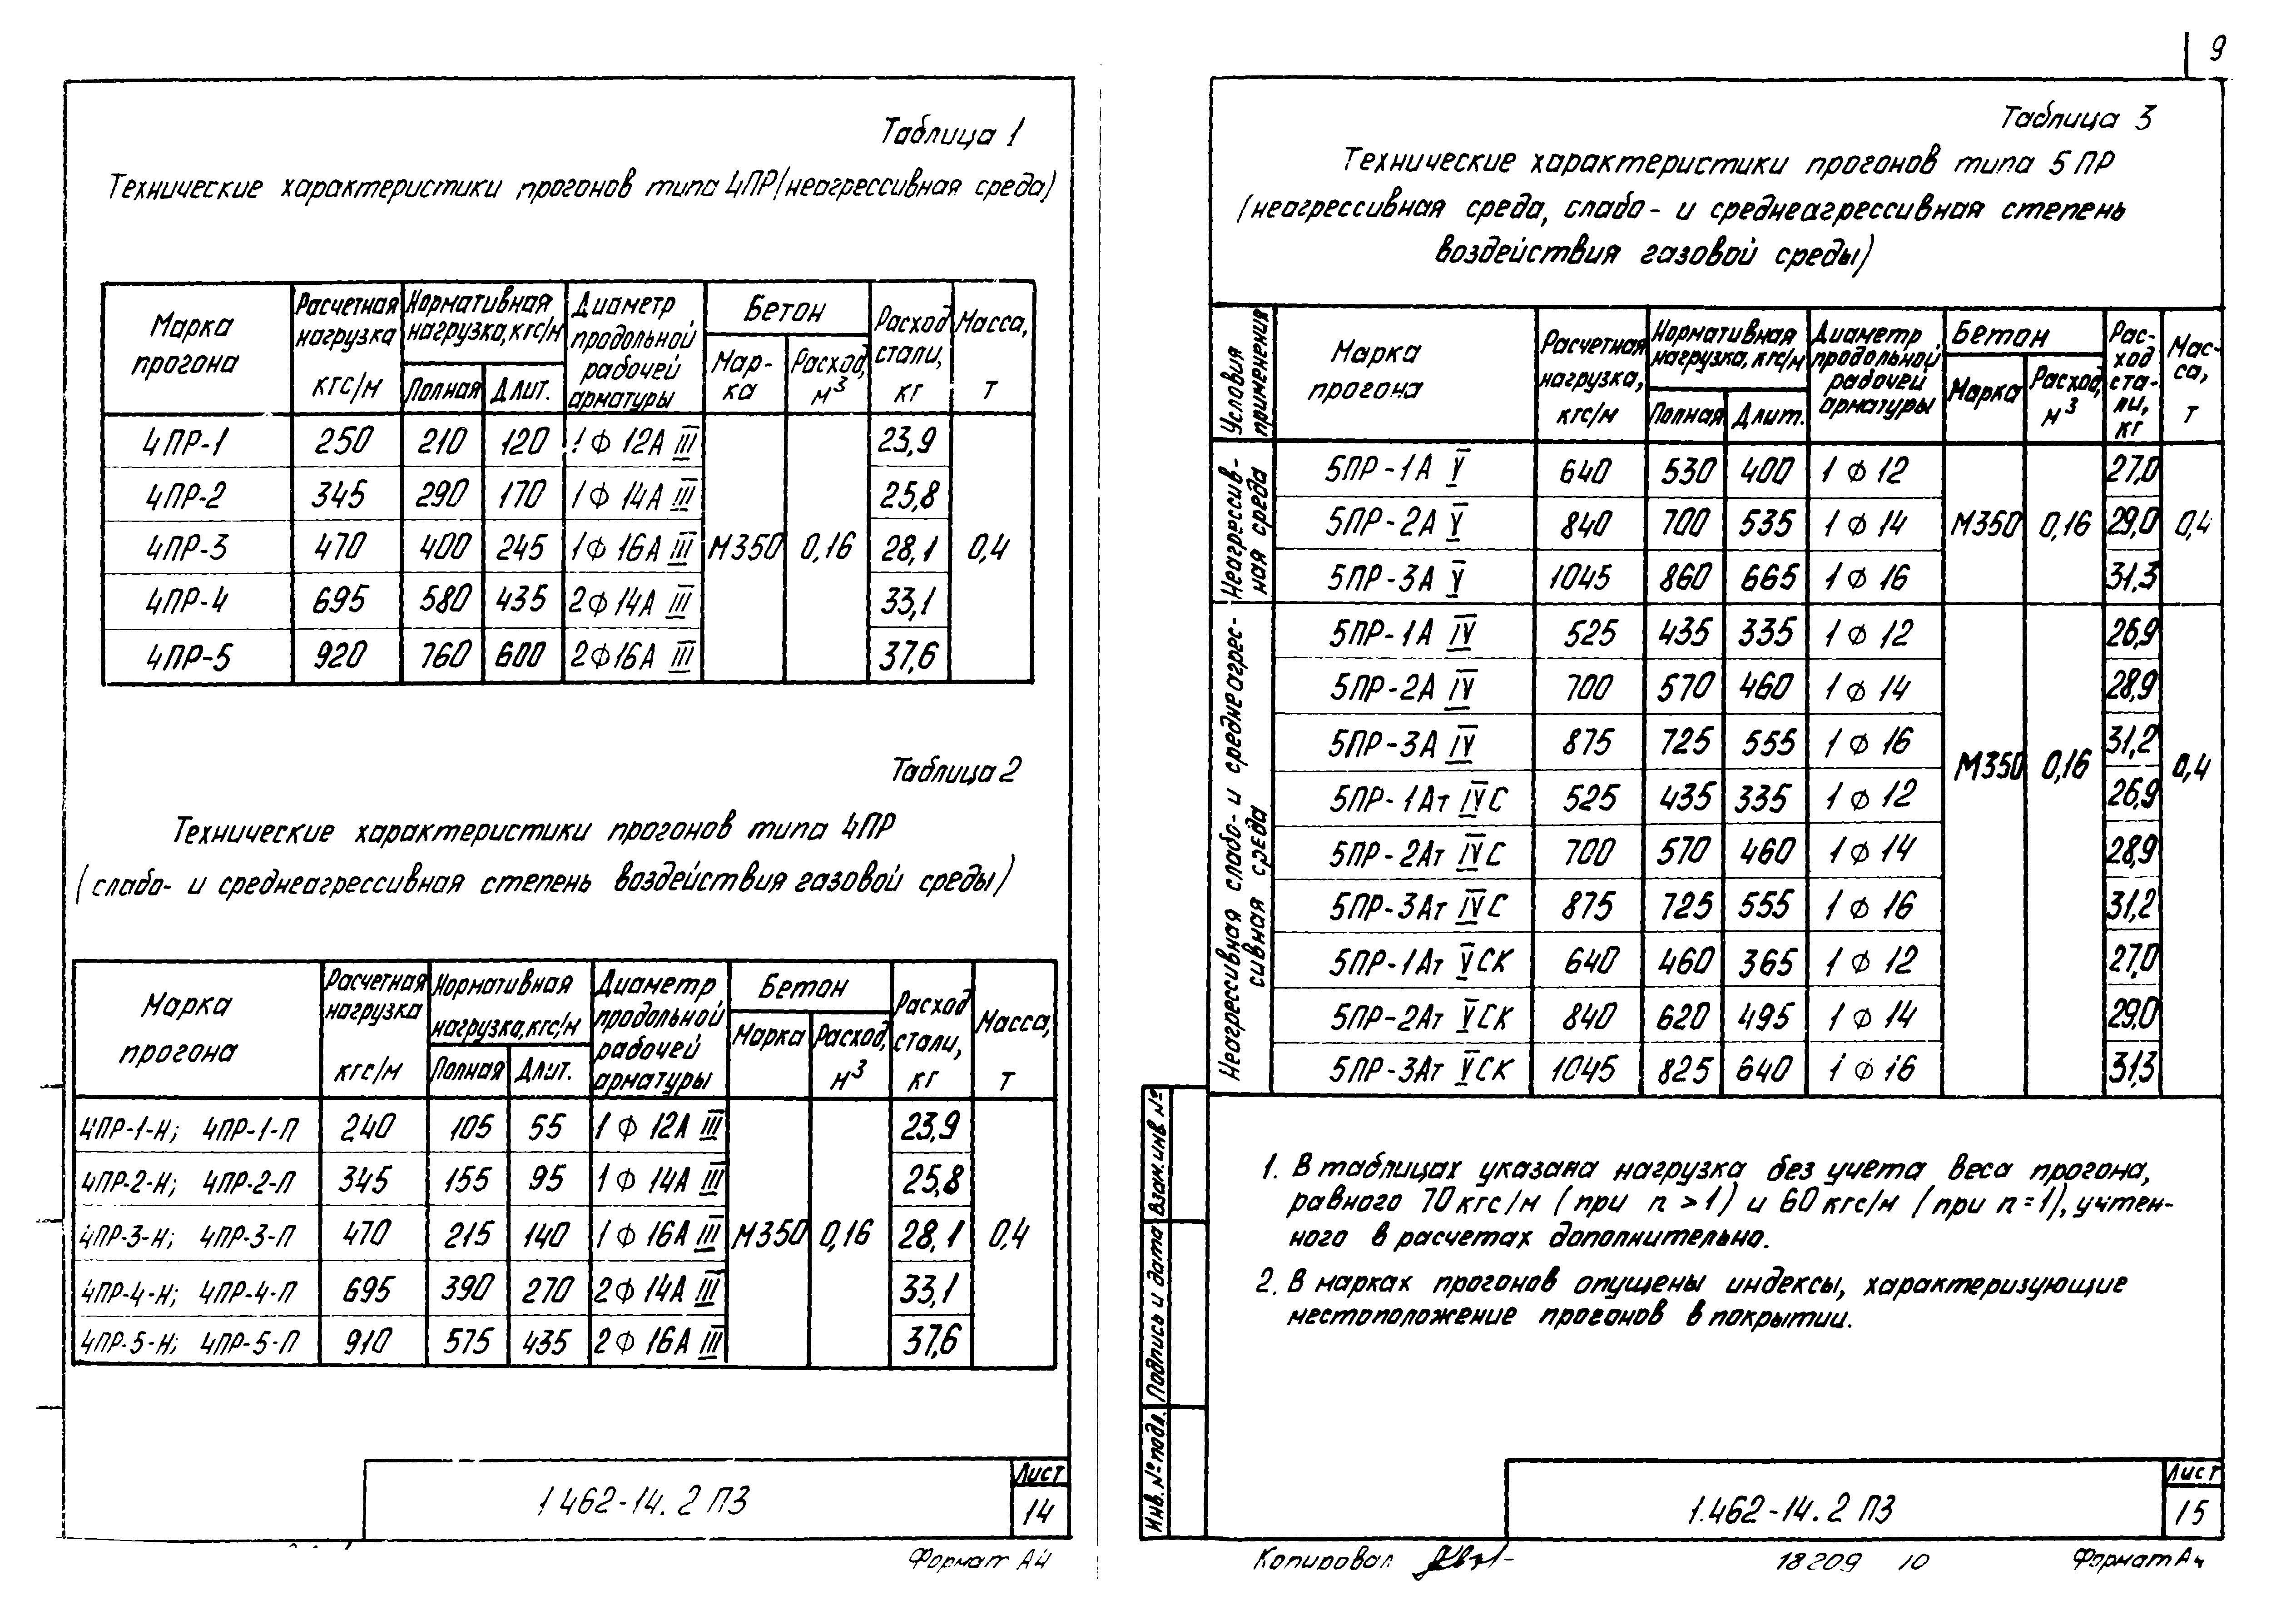 9
Таблица 1
Технические характеристики прогонов типа 4ПР (неагрессивная среда)
Марка прогона | Расчетная нагрузка кгс/м | Нормативная нагрузка, кгс/м | Диаметр продольной рабочей арматуры | Бетон | Расход стали, кг | Масса, т
Полная | Длит. | Мар-ка | Расход, м³
4ПР-1 | 250 | 210 | 120 | 1 Ф 12А III | 23,9
4ПР-2 | 345 | 290 | 170 | 1 Ф 14А III | 25,8
4ПР-3 | 470 | 400 | 245 | 1 Ф 16А III | М350 | 0,16 | 28,1 | 0,4
4ПР-4 | 695 | 580 | 435 | 2 Ф 14А III | 33,1
4ПР-5 | 920 | 760 | 600 | 2 Ф 16А III | 37,6
Таблица 2
Технические характеристики прогонов типа 4ПР
(слабо- и среднеагрессивная степень воздействия газовой среды)
Марка прогона | Расчетная нагрузка кгс/м | Нормативная нагрузка, кгс/м | Диаметр продольной рабочей арматуры | Бетон | Расход стали, кг | Масса, т
Полная | Длит. | Марка | Расход, м³
4ПР-1-Н; 4ПР-1-П | 240 | 105 | 55 | 1 Ф 12А III | 23,9
4ПР-2-Н; 4ПР-2-П | 345 | 155 | 95 | 1 Ф 14А III | 25,8
4ПР-3-Н; 4ПР-3-П | 470 | 215 | 140 | 1 Ф 16А III | М350 | 0,16 | 28,1 | 0,4
4ПР-4-Н; 4ПР-4-П | 695 | 390 | 270 | 2 Ф 14А III | 33,1
4ПР-5-Н; 4ПР-5-П | 910 | 575 | 435 | 2 Ф 16А III | 37,6
1 462-14. 2 ПЗ
Лист
14
Формат А4
Таблица 3
Технические характеристики прогонов типа 5 ПР
(неагрессивная среда, слабо- и среднеагрессивная степень
воздействия газовой среды)
Условия применения | Марка прогона | Расчетная нагрузка, кгс/м | Нормативная нагрузка, кгс/м | Диаметр продольной рабочей арматуры | Бетон | Рас-ход ста-ли, кг | Мас-са, т
Полная | Длит. | Марка | Расход, м³
Неагрессив-ная среда
5ПР-1А V | 640 | 530 | 400 | 1 Ф 12 | 27,0
5ПР-2А V | 840 | 700 | 535 | 1 Ф 14 | М350 | 0,16 | 29,0 | 0,4
5ПР-3А V | 1045 | 860 | 665 | 1 Ф 16 | 31,3
Неагрессивная слабо- и среднеагрес-сивная среда
5ПР-1А IV | 525 | 435 | 335 | 1 Ф 12 | 26,9
5ПР-2А IV | 700 | 570 | 460 | 1 Ф 14 | 28,9
5ПР-3А IV | 875 | 725 | 555 | 1 Ф 16 | 31,2
5ПР-1Ат IVС | 525 | 435 | 335 | 1 Ф 12 | М350 | 0,16 | 26,9 | 0,4
5ПР-2Ат IVС | 700 | 570 | 460 | 1 Ф 14 | 28,9
5ПР-3Ат IVС | 875 | 725 | 555 | 1 Ф 16 | 31,2
5ПР-1Ат VСК | 640 | 460 | 365 | 1 Ф 12 | 27,0
5ПР-2Ат VСК | 840 | 620 | 495 | 1 Ф 14 | 29,0
5ПР-3Ат VСК | 1045 | 825 | 640 | 1 Ф 16 | 31,3
1. В таблицах указана нагрузка без учета веса прогона,
равного 70 кгс/м (при n > 1) и 60 кгс/м (при n = 1), учтен-
ного в расчетах дополнительно.
2. В марках прогонов опущены индексы, характеризующие
местоположение прогонов в покрытии.
Взам. инв. №
Подпись и дата
Инв. № подл.
1.462-14. 2 ПЗ
Лист
15
Копировал
18209 10
Формат А4